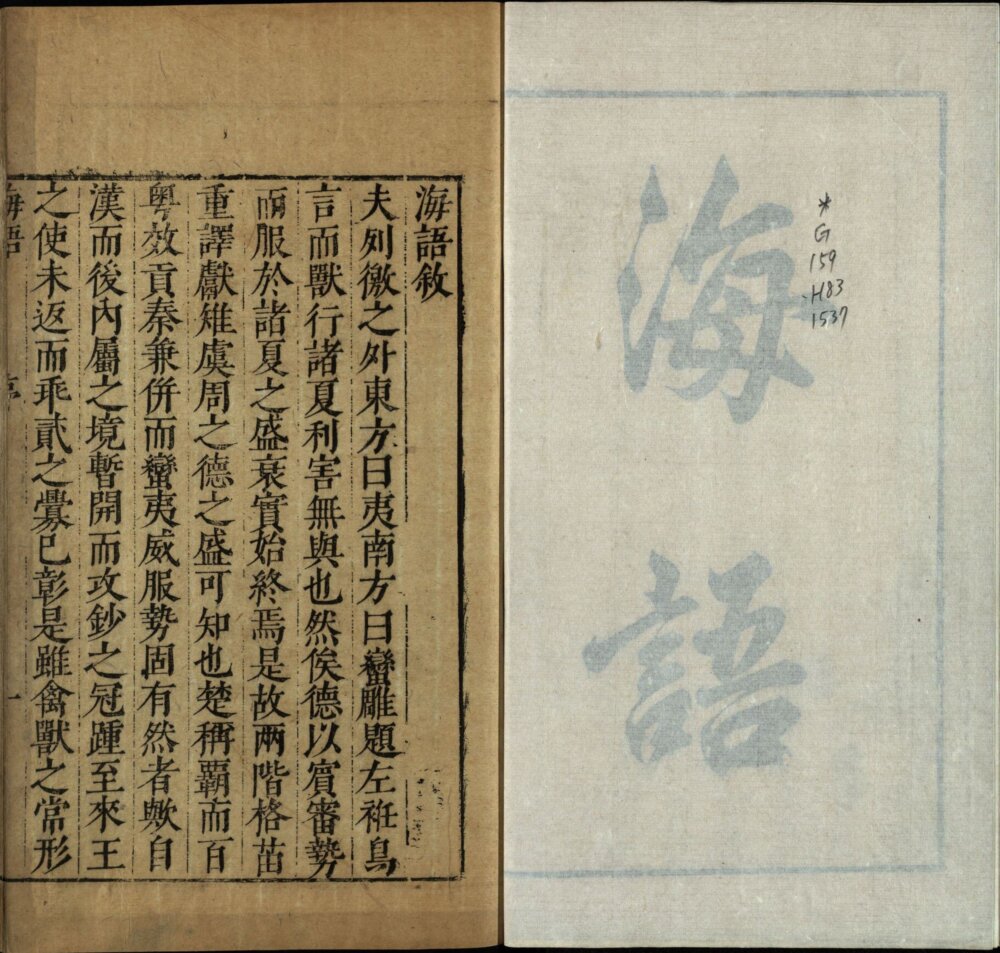 海
語
*
G
159
.H83
1537
海語敘
夫列徼之外東方曰夷南方曰蠻雕題左衽鳥
言而獸行諸夏利害無與也然俟德以賓審勢
而服於諸夏之盛衰實始終焉是故兩階格苗
重譯獻雉虞周之德之盛可知也楚稱覇而百
粤效貢秦兼併而蠻夷威服勢固有然者歟自
漢而後內屬之境暫開而攻鈔之冦踵至來王
之使未返而乖貳之釁已彰是雖禽獸之常形
海語
一